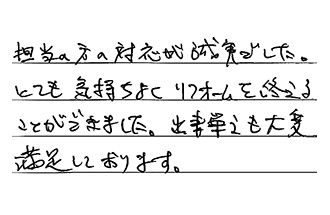 担当の方の対応が誠実でした。
とても気持ちよくリフォームを終える
ことができました。出来栄えも大変
満足しております。